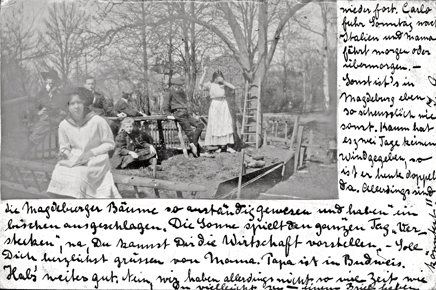 wieder fort. Carlo
fuhr Sonntag nach
Italien und Mama
fährt morgen oder
übermorgen. –
Sonst ist's in
Magdeburg eben
so scheusslich wie
sonst. Kaum hat
es zwei Tage keinen
Wind gegeben, so
ist er heute doppelt
da. Allerdings sind
die Magdeburger Bäume so anständig gewesen und haben ein
bischen ausgeschlagen. Die Sonne spielt den ganzen Tag „Ver-
stecken", na Du kannst Dir die Wirtschaft vorstellen. – Soll
Dich herzlichst grüssen von Mama. Papa ist in Budweis.
Hab's weiter gut. Nein, wir haben allerdings nicht so viel Zeit wie